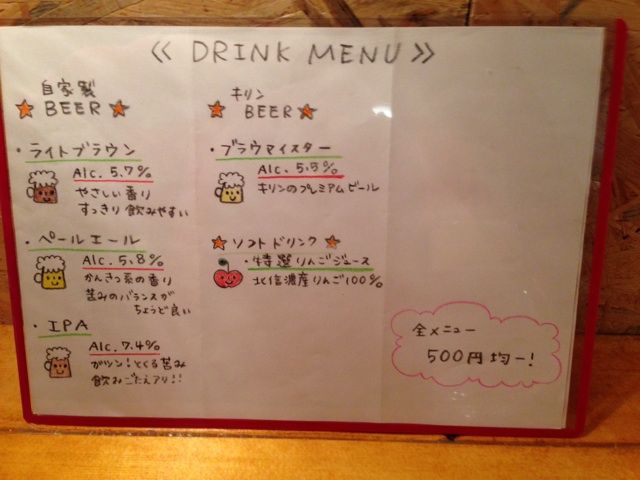 ≪ DRINK MENU ≫
自家製
★ BEER ★
・ライトブラウン
Alc. 5.7%
やさしい香り
すっきり飲みやすい
・ペールエール
Alc. 5.8%
かんきつ系の香り
苦みのバランスが
ちょうど良い
・IPA
Alc. 7.4%
ガツン!とくる苦み
飲みごたえアリ!!
キリン
BEER ★
・ブラウマイスター
Alc. 5.5%
キリンのプレミアムビール
★ ソフトドリンク ★
・特選りんごジュース
北信濃産りんご100%
全メニュー
500円均一!